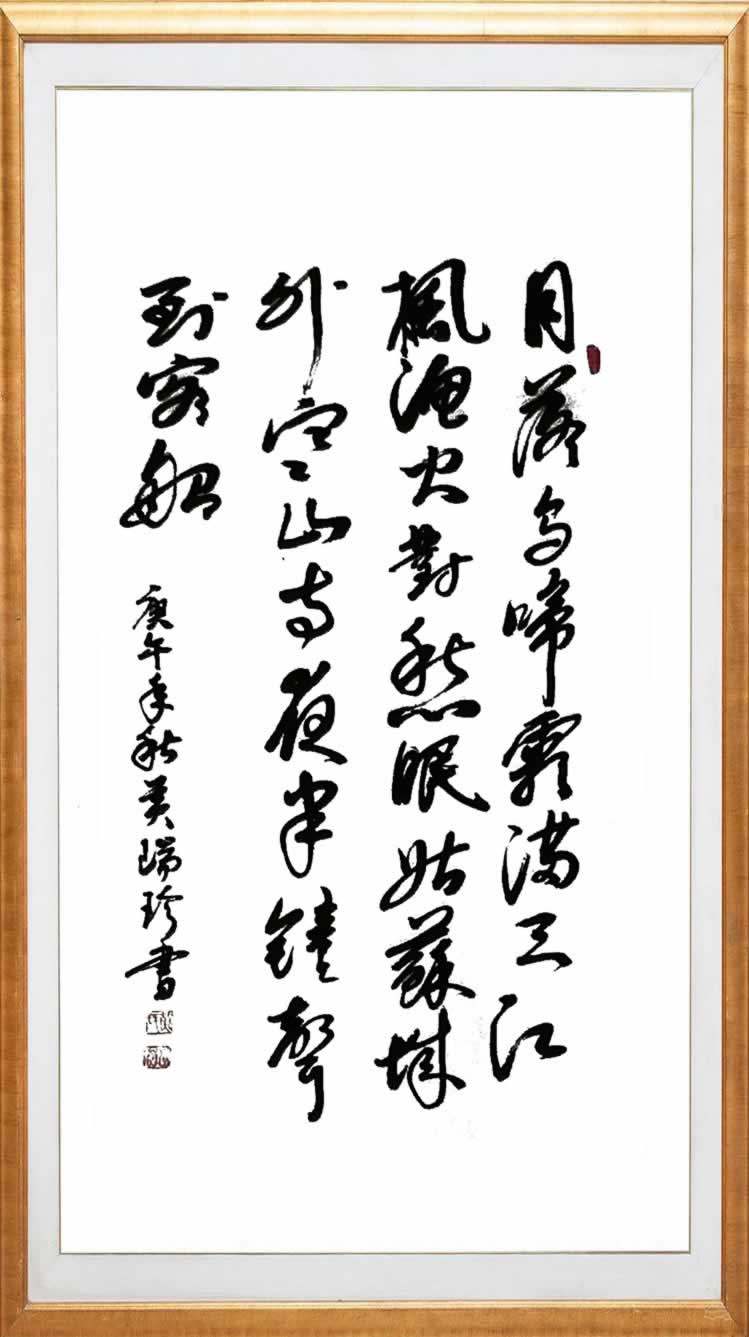 月落烏啼霜滿天江
楓漁火對愁眠姑蘇城
外寒山寺夜半鐘聲
到客船
庚午年秋黃瑞珍書